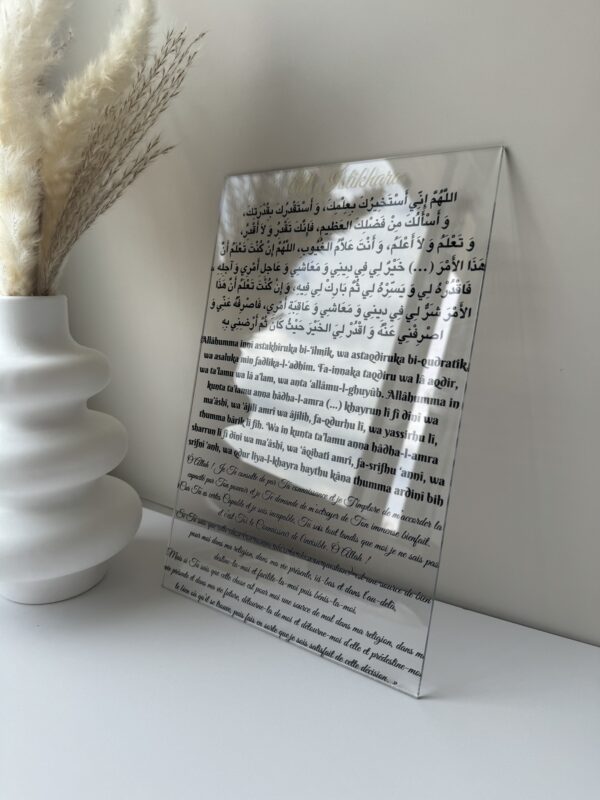 Istikhara
اللَّهُمَّ إِنِّي أَسْتَخِيرُكَ بِعِلْمِكَ، وَ أَسْتَقْدِرُكَ بِقُدْرَتِكَ،
وَ أَسْأَلُكَ مِنْ فَضْلِكَ العَظِيمِ، فَإِنَّكَ تَقْدِرُ وَ لاَ أَقْدِرُ،
وَ تَعْلَمُ وَ لاَ أَعْلَمُ، وَ أَنْتَ عَلاَّمُ الغُيُوبِ، اللَّهُمَّ إِنْ كُنْتَ تَعْلَمُ أَنَّ
هَذَا الأَمْرَ (...) خَيْرٌ لِي فِي دِينِي وَ مَعَاشِي وَ عَاجِلِ أَمْرِي وَ آجِلِهِ ،
فَاقْدُرْهُ لِي وَ يَسِّرْهُ لِي ثُمَّ بَارِكْ لِي فِيهِ، وَ إِنْ كُنْتَ تَعْلَمُ أَنَّ هَذَا
الأَمْرَ شَرٌّ لِي فِي دِينِي وَ مَعَاشِي وَ عَاقِبَةِ أَمْرِي، فَاصْرِفْهُ عَنِّي وَ
اصْرِفْنِي عَنْهُ وَ اقْدُرْ لِيَ الخَيْرَ حَيْثُ كَانَ ثُمَّ أَرْضِنِي بِهِ
Allâhumma innî astakhiruka bi-'ilmik, wa astaqdiruka bi-qudratik,
wa asaluka min fadlika-l-'adhim. Fa-innaka taqdiru wa lâ aqdir,
wa ta'lamu wa lâ a'lam, wa anta 'allâmu-l-ghuyûb. Allâhumma in
kunta ta'lamu anna hâdha-l-amra (...) khayrun li fi dini wa
ma'âshi, wa 'âjili amri wa âjilih, fa-qdurhu li, wa yassirhu li,
thumma bârik li fih. Wa in kunta ta'lamu anna hâdha-l-amra
sharrun li fi dini wa ma'âshi, wa 'âqibati amri, fa-srifhu 'anni, wa
srifni 'anh, wa qdur liya-l-khayra haythu kâna thumma ardini bih
Ô Allah ! Je Te consulte de par Ta connaissance et je T'implore de m'accorder la
capacité par Ton pouvoir et je Te demande de m'octroyer de Ton immense bienfait.
Car Tu es certes Capable et je suis incapable, Tu sais tout tandis que moi je ne sais pas
et c'est Toi le Connaisseur de l'invisible. Ô Allah !
Si Tu sais que cette est une source de bien
pour moi dans ma religion, dans ma vie présente, ici-bas et dans l'au-delà,
destine-la moi et facilite-la-moi puis bénis-la-moi.
Mais si Tu sais que cette chose est pour moi une source de mal dans ma religion, dans ma
vie présente et dans ma vie future, détourne-la de moi et détourne-moi d'elle et prédestine-moi
le bien où qu'il se trouve, puis fais en sorte que je sois satisfait de cette décision. »